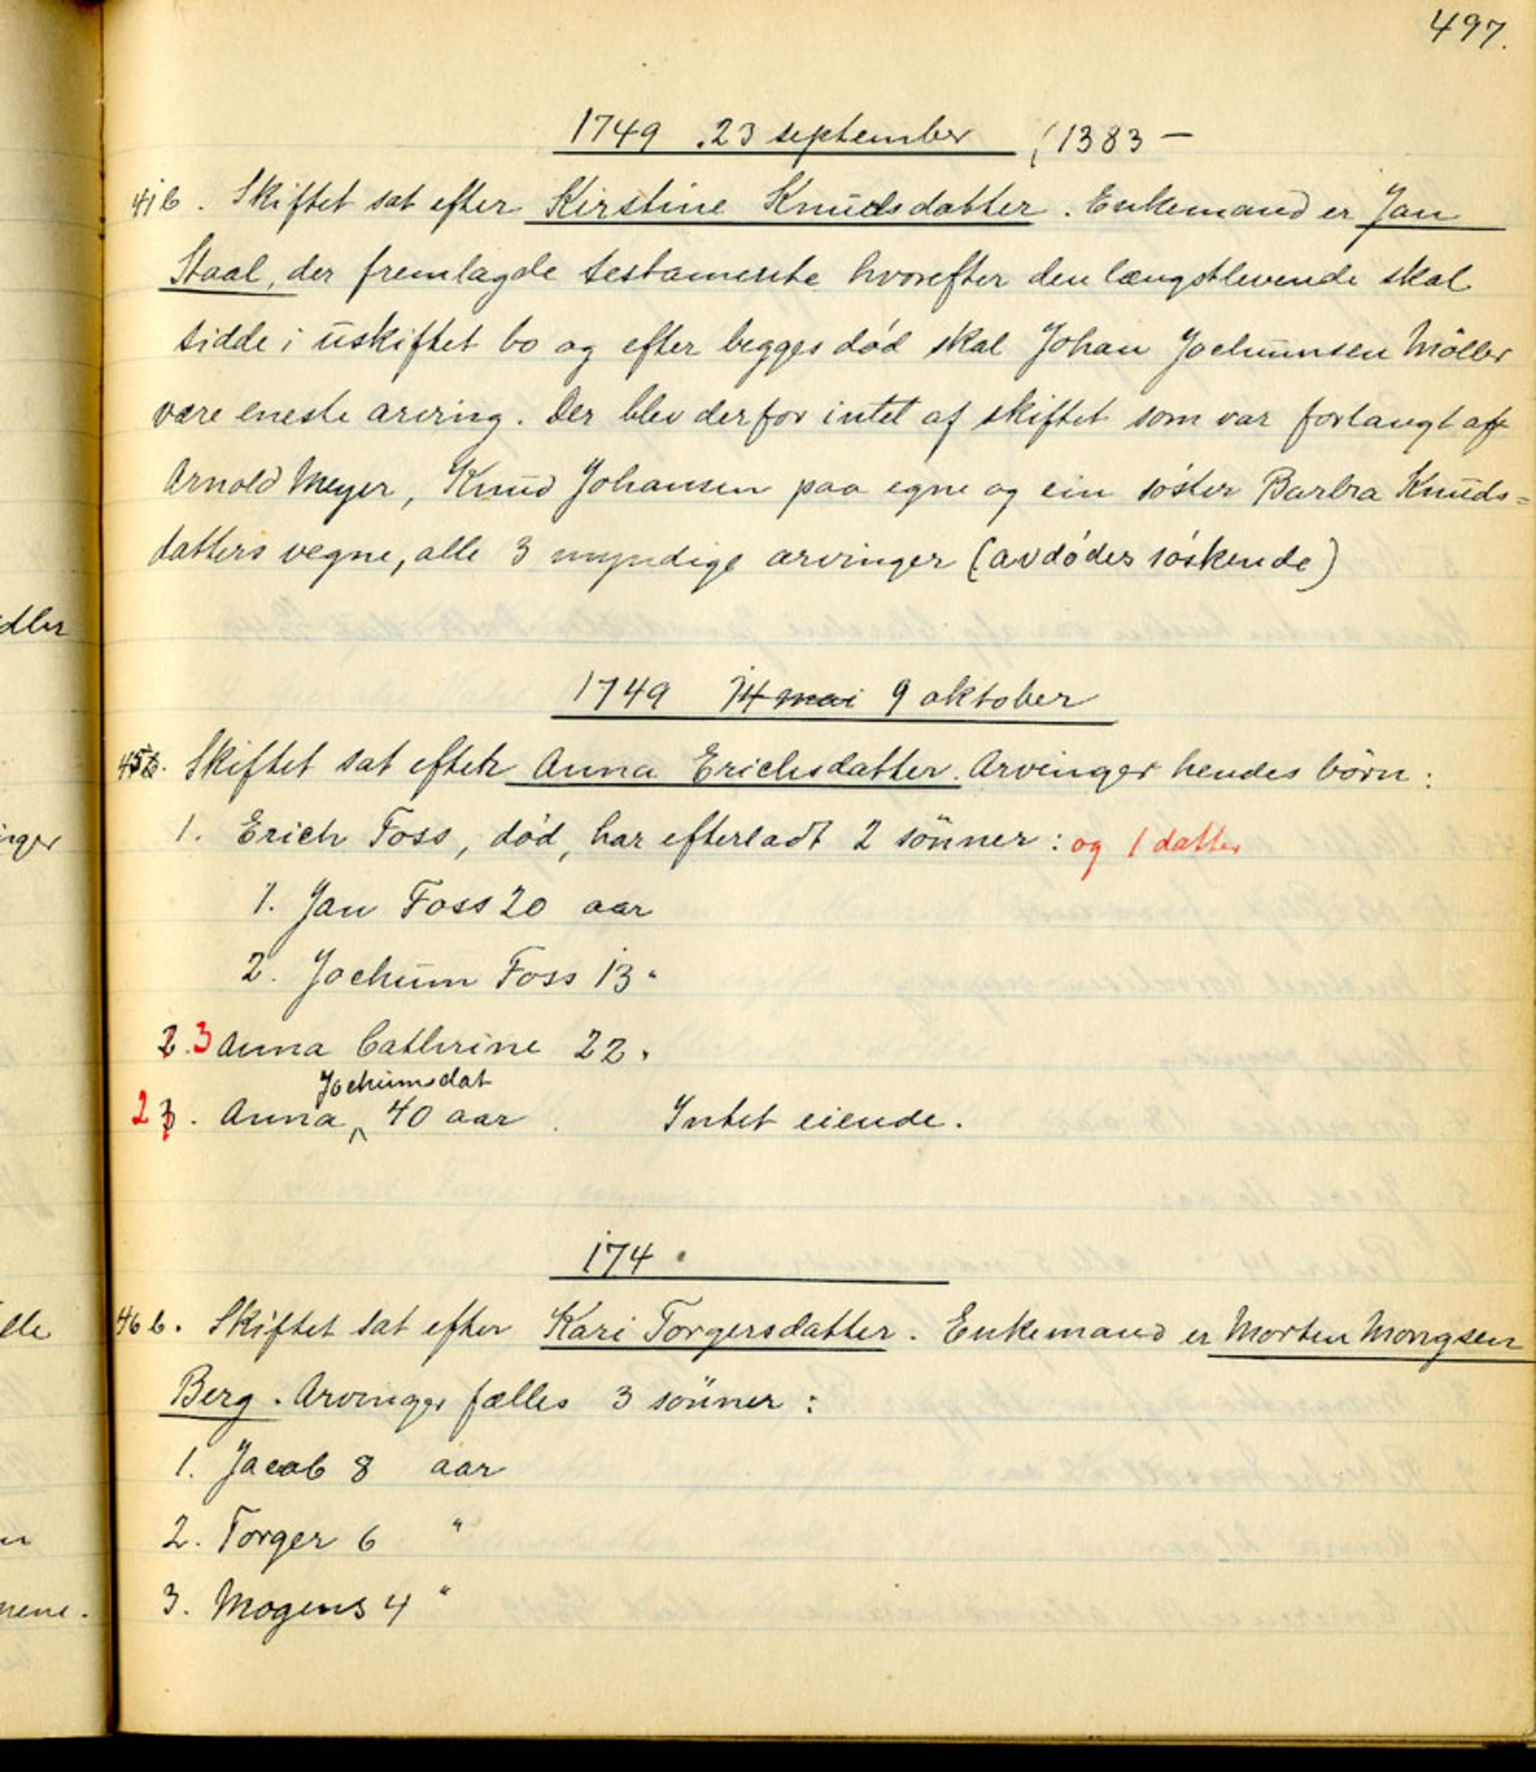 497.
1749 . 23 september (1383 —
41b. Skiftet sat efter Kirstine Knudsdatter. Enkemand er Jan
Staal, der fremlagde testamente hvorefter den længstlevende skal
sidde i uskiftet bo og efter begges død skal Johan Jochumsen Möller
være eneste arving. Der blev derfor intet af skiftet som var forlangt af
Arnold Meyer, Knud Johansen paa egne og ein søster Barbra Knuds=
datters vegne, alle 3 myndige arvinger (avdødes søskende)
dler
1749 14 mai 9 oktober
45b. Skiftet sat efter Anna Erichsdatter. Arvinger hendes börn:
1. Erich Foss, død, har efterladt 2 sönner: og 1 datter
nger
1. Jan Foss 20 aar
2. Jochum Foss 13 "
2. 3 Anna Cathrine 22 "
Jochumsdat
2 3. Anna 40 aar . Intet eiende.
174
46b. Skiftet sat efter Kari Torgersdatter. Enkemand er Morten Mongsen
Berg. Arvinger fælles 3 sönner:
1. Jacob 8 aar
2. Torger 6 "
3. Mogens 4 "